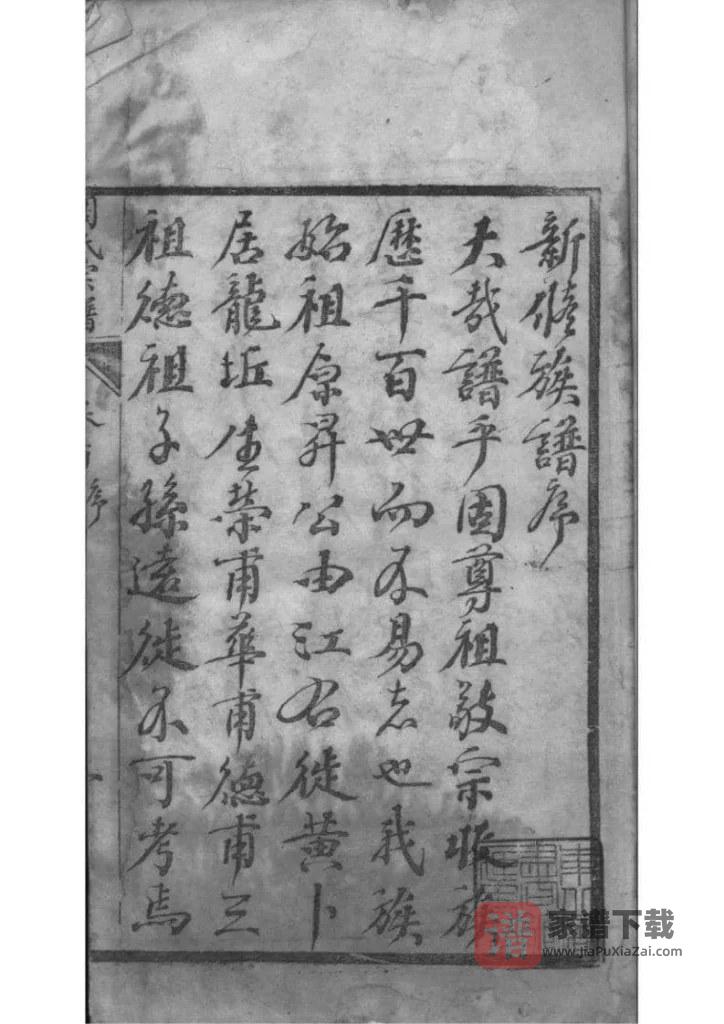 新修族譜序
大哉譜乎固尊祖敬宗收族
歷千百世而不易者也我族
始祖原昇公由江右徙黃卜
居龍坵生榮甫華甫德甫三
祖德祖子孫遠徙不可考焉
氏宗譜
序
一
譜
家谱下载
www.jiaPuXiaZai.com